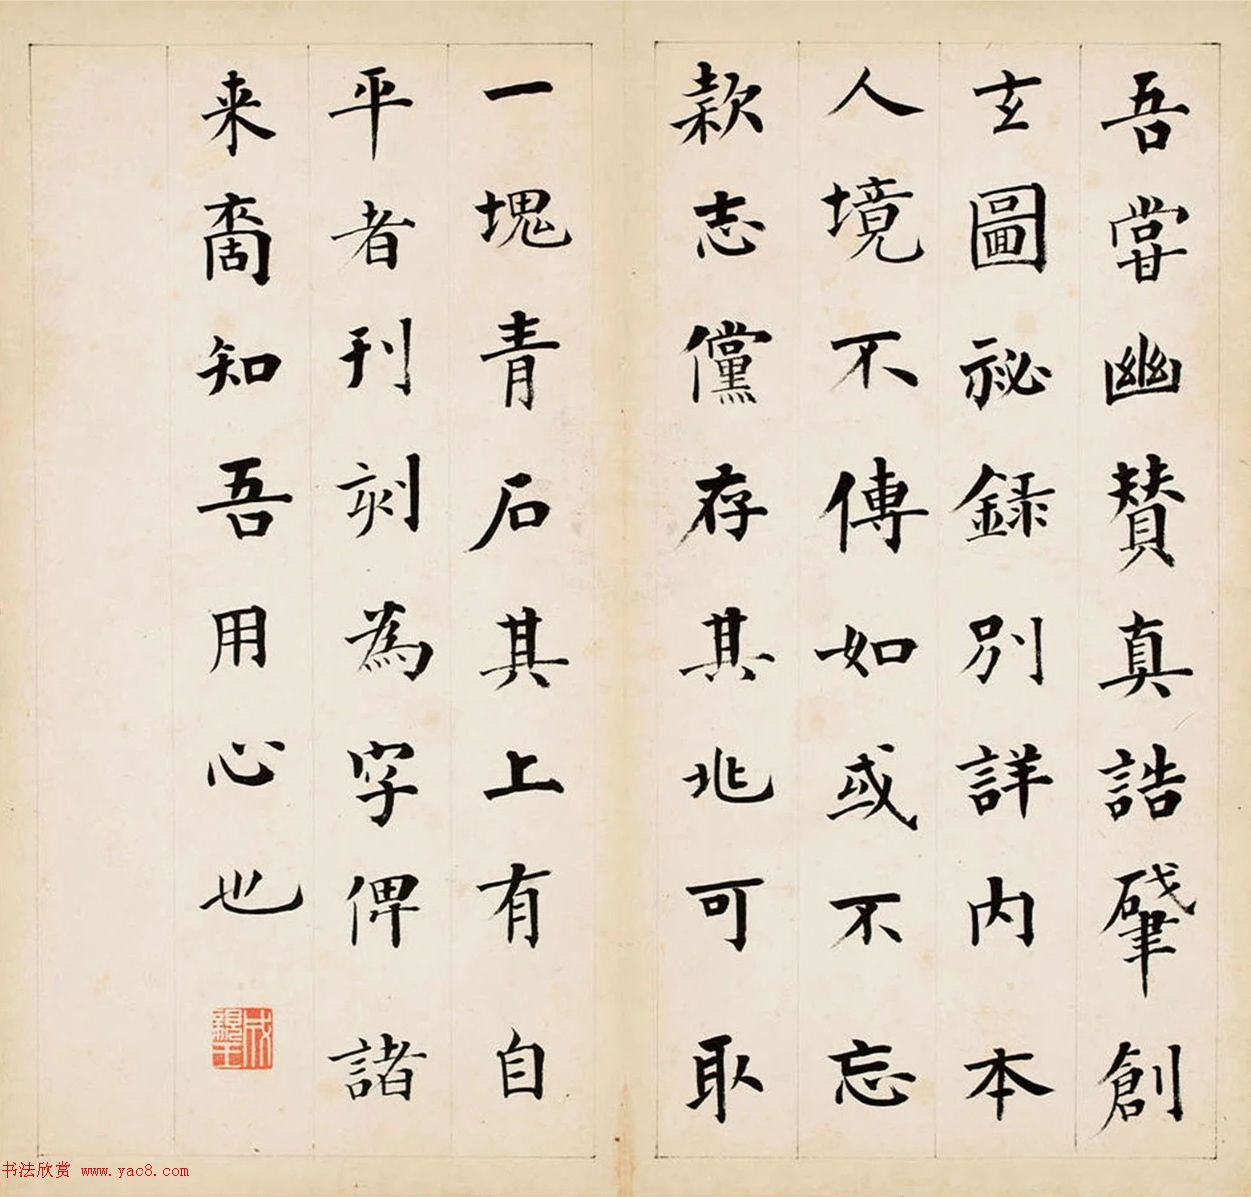 吾甞幽賛真誥肇創
玄圖祕録別詳内本
人境不傳如或不忘
款志儻存其兆可取
一塊青石其上有自
平者刊刻為字俾諸
来裔知吾用心也
成親王
书法欣赏 www.yac8.com